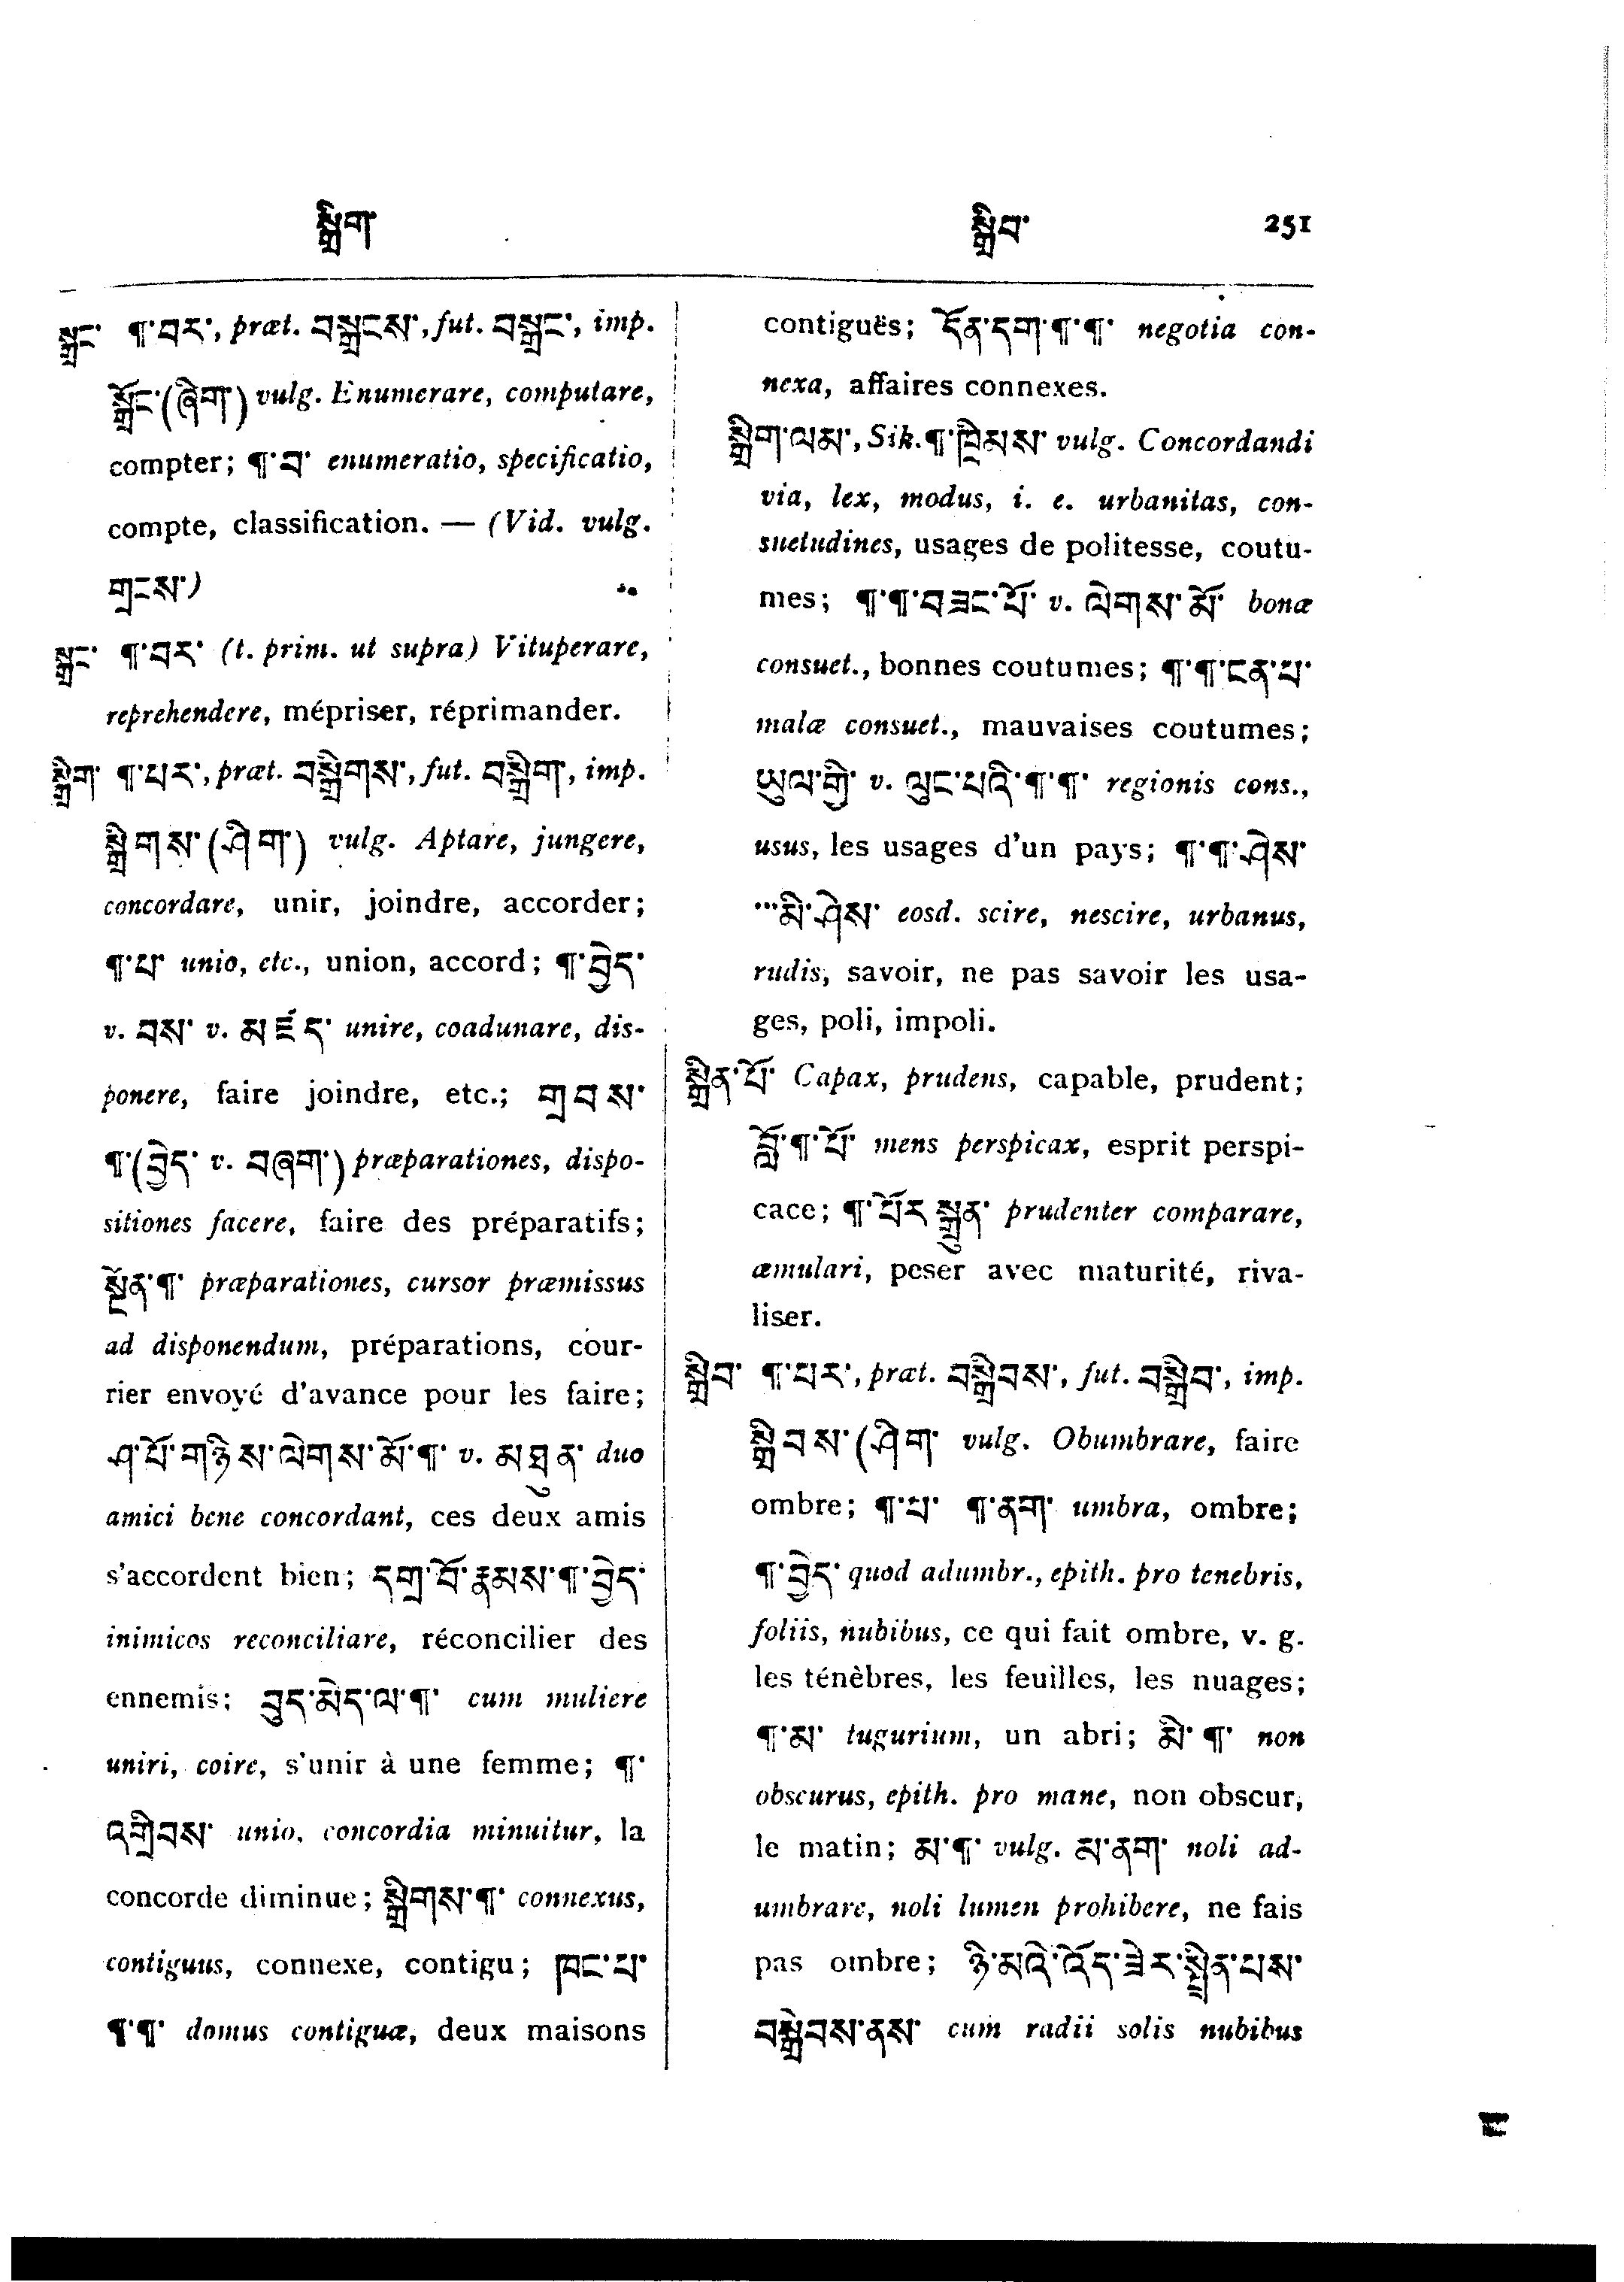 སྒྲིག་ སྒྲིབ་ 251
སྒྲང་ ¶་བར་, præt. བསྒྲངས་, fut. བསྒྲང་, imp.
སྒྲོང་(ཞིག་) vulg. Enumerare, computare,
compter; ¶་བ་ enumeratio, specificatio,
compte, classification. — (Vid. vulg.
གྲངས་)
སྒྲང་ ¶་བར་ (t. prim. ut supra) Vituperare,
reprehendere, mépriser, réprimander.
སྒྲིག་ ¶་པར་, præt. བསྒྲིགས་, fut. བསྒྲིག་, imp.
སྒྲིགས་(ཤིག་) vulg. Aptare, jungere,
concordare, unir, joindre, accorder;
¶་པ་ unio, etc., union, accord; ¶་བྱེད་
v. བས་ v. མཛད་ unire, coadunare, dis-
ponere, faire joindre, etc.; གྲབས་
¶་(བྱེད་ v. བཞག་) præparationes, dispo-
sitiones facere, faire des préparatifs;
སྔོན་¶་ præparationes, cursor præmissus
ad disponendum, préparations, cour-
rier envoyé d'avance pour les faire;
ཤ་པོ་གཉིས་ལེགས་མོ་¶་ v. མཐུན་ duo
amici bene concordant, ces deux amis
s'accordent bien; དགྲ་བོ་རྣམས་¶་བྱེད་
inimicos reconciliare, réconcilier des
ennemis; བུད་མེད་ལ་¶་ cum muliere
uniri, coire, s'unir à une femme; ¶་
འགྲིབས་ unio, concordia minuitur, la
concorde diminue; སྒྲིགས་¶་ connexus,
contiguus, connexe, contigu; ཁང་པ་
¶་¶་ domus contiguæ, deux maisons
contiguës; དོན་དག་¶་¶་ negotia con-
nexa, affaires connexes.
སྒྲིག་ལམ་, Sik. ¶་ཁྲིམས་ vulg. Concordandi
via, lex, modus, i. e. urbanitas, con-
suetudines, usages de politesse, coutu-
mes; ¶་¶་བཟང་པོ་ v. ལེགས་མོ་ bonæ
consuet., bonnes coutumes; ¶་¶་ངན་པ་
malæ consuet., mauvaises coutumes;
ཡུལ་གྱི་ v. ལུང་པའི་¶་¶་ regionis cons.,
usus, les usages d'un pays; ¶་¶་ཤེས་
་་་མི་ཤེས་ eosd. scire, nescire, urbanus,
rudis, savoir, ne pas savoir les usa-
ges, poli, impoli.
སྒྲིན་པོ་ Capax, prudens, capable, prudent;
བློ་¶་པོ་ mens perspicax, esprit perspi-
cace; ¶་པོར་སྒྲུན་ prudenter comparare,
æmulari, peser avec maturité, riva-
liser.
སྒྲིབ་ ¶་པར་, præt. བསྒྲིབས་, fut. བསྒྲིབ་, imp.
སྒྲིབས་(ཤིག་ vulg. Obumbrare, faire
ombre; ¶་པ་ ¶་ནག་ umbra, ombre;
¶་བྱེད་ quod adumbr., epith. pro tenebris,
foliis, nubibus, ce qui fait ombre, v. g.
les ténèbres, les feuilles, les nuages;
¶་མ་ tugurium, un abri; མི་¶་ non
obscurus, epith. pro mane, non obscur,
le matin; མ་¶་ vulg. མ་ནག་ noli ad-
umbrare, noli lumen prohibere, ne fais
pas ombre; ཉི་མའི་འོད་ཟེར་སྤྲིན་པས་
བསྒྲིབས་ནས་ cum radii solis nubibus